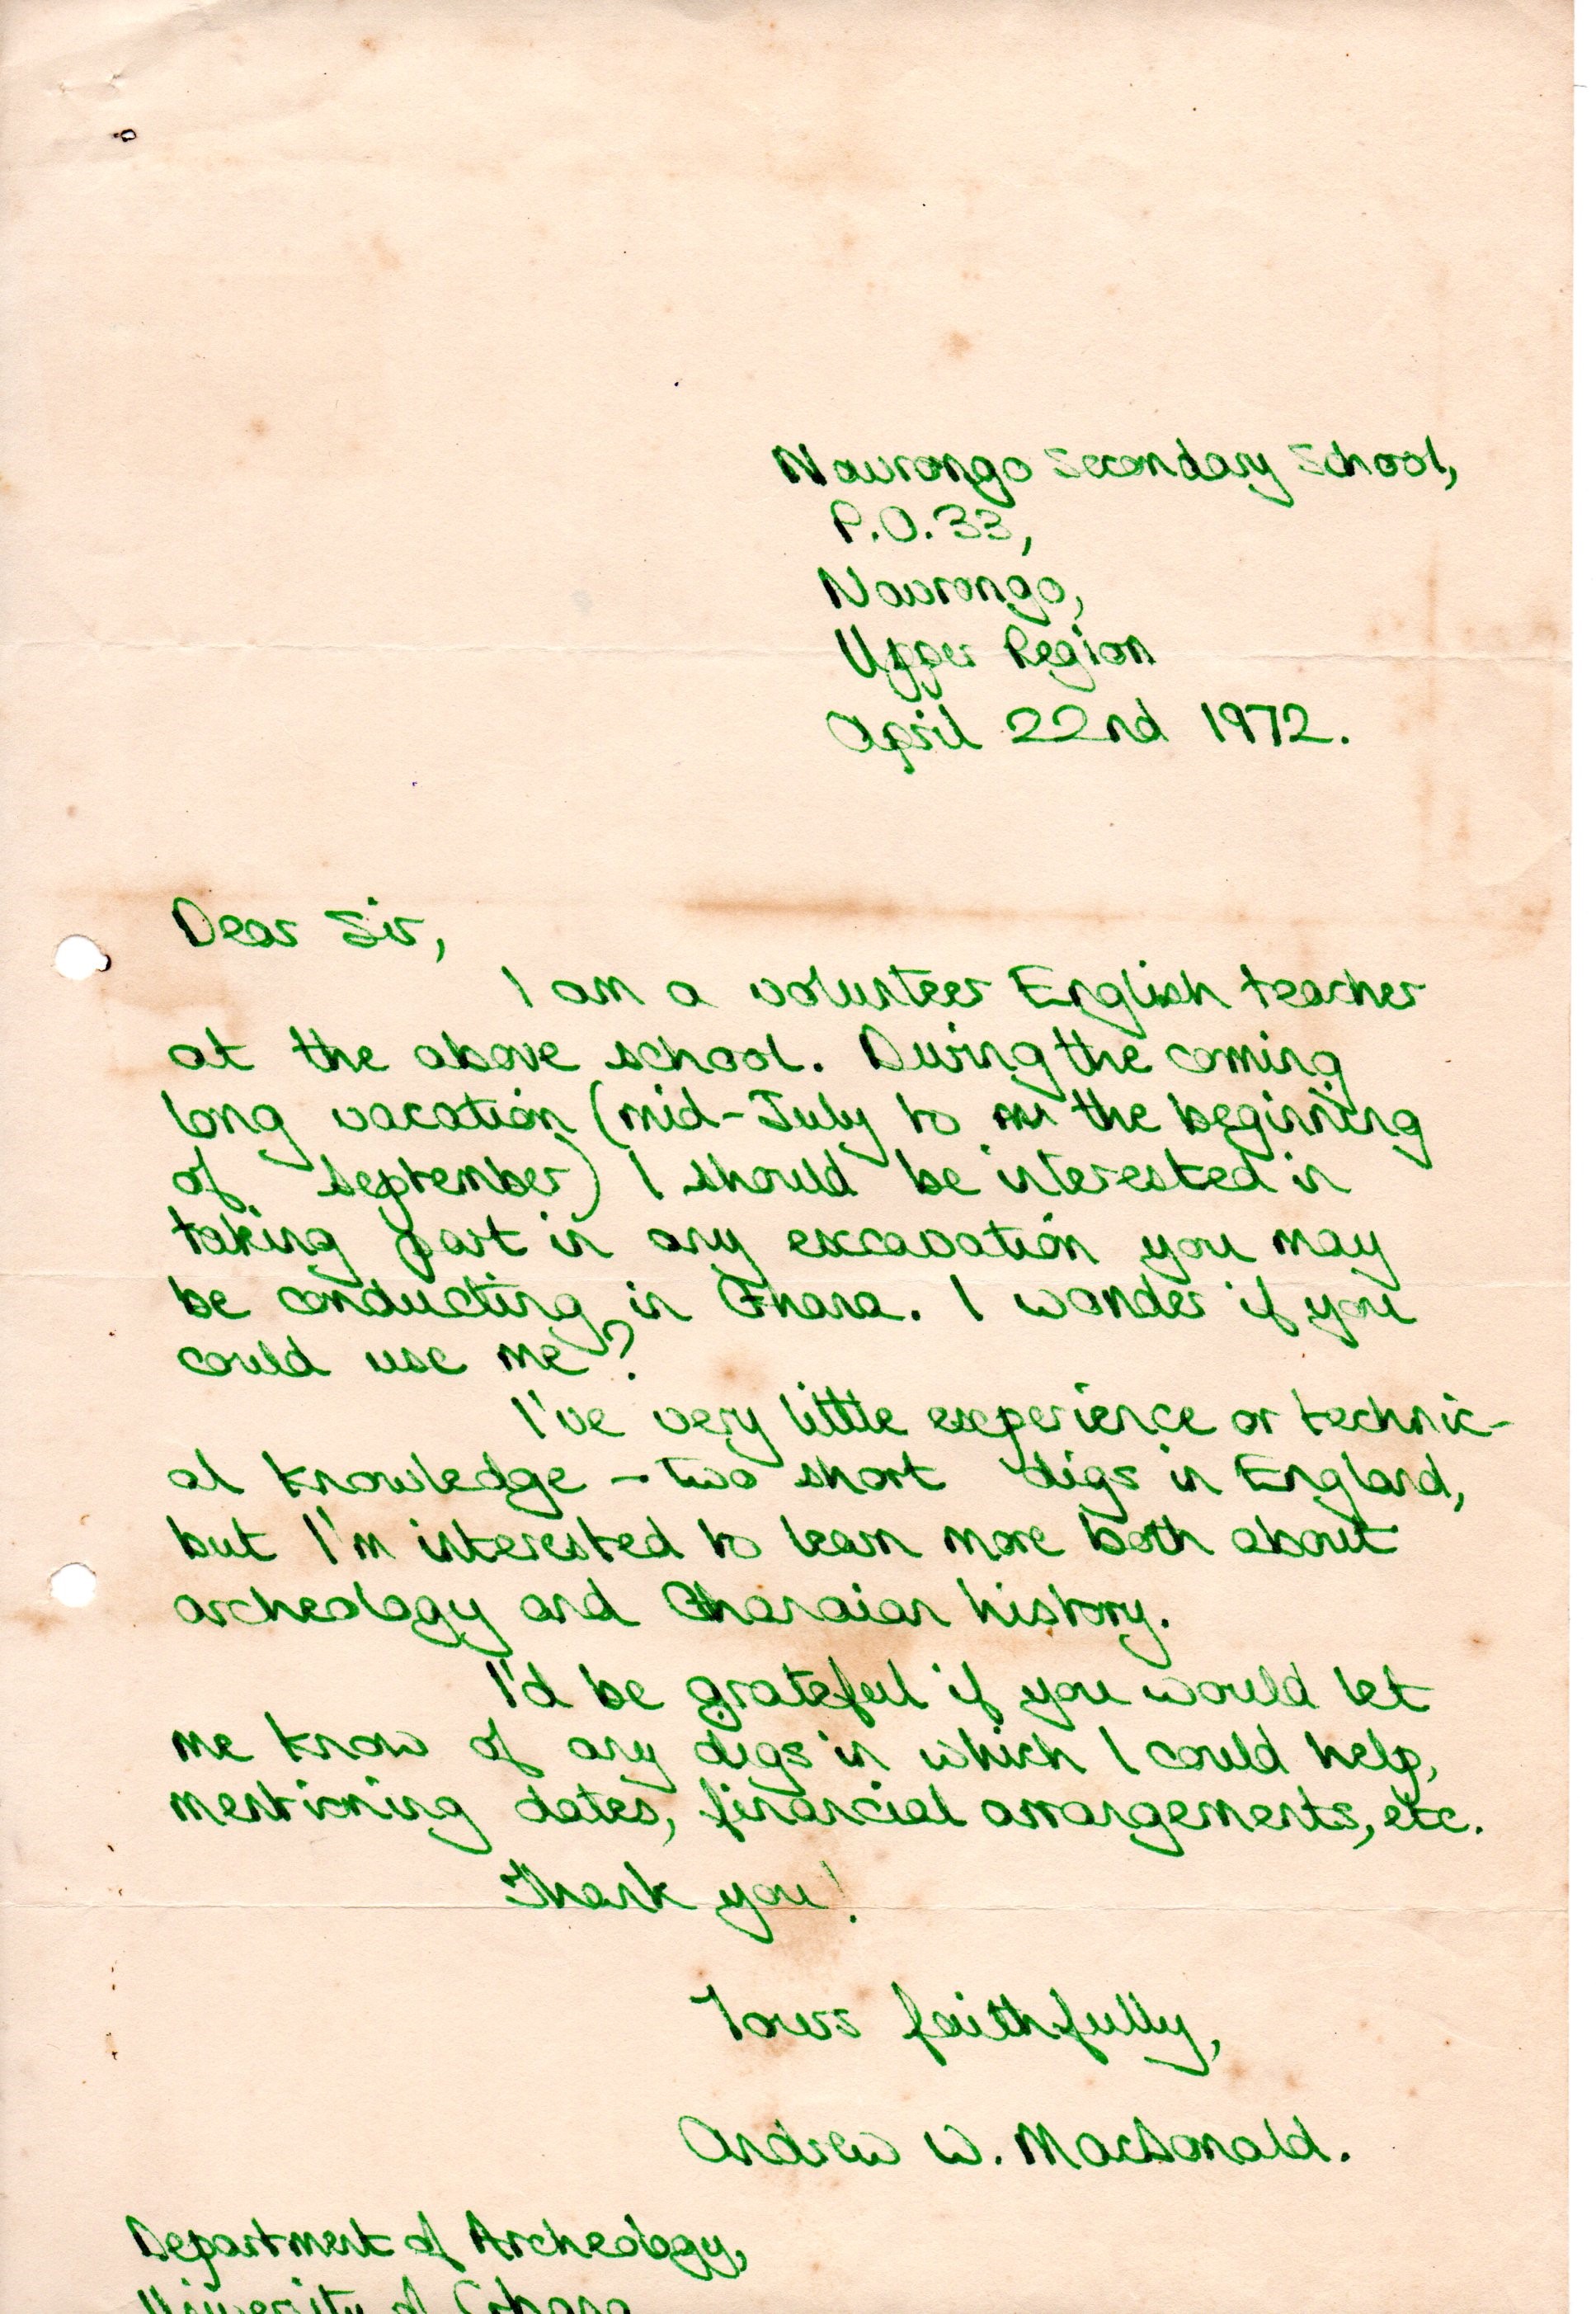 Navrongo Secondary School,
P.O. 33,
Navrongo,
Upper Region
April 22nd 1972.
Dear Sir,
I am a volunteer English teacher
at the above school. During the coming
long vacation (mid-July to the beginning
of September) I should be interested in
taking part in any excavation you may
be conducting in Ghana. I wonder if you
could use me?
I've very little experience or technic-
al knowledge - two short digs in England,
but I'm interested to learn more both about
archeology and Ghanaian history.
I'd be grateful if you would let
me know of any digs in which I could help,
mentioning dates, financial arrangements, etc.
Thank you!
Yours faithfully,
Andrew W. MacDonald.
Department of Archeology,
University of Ghana